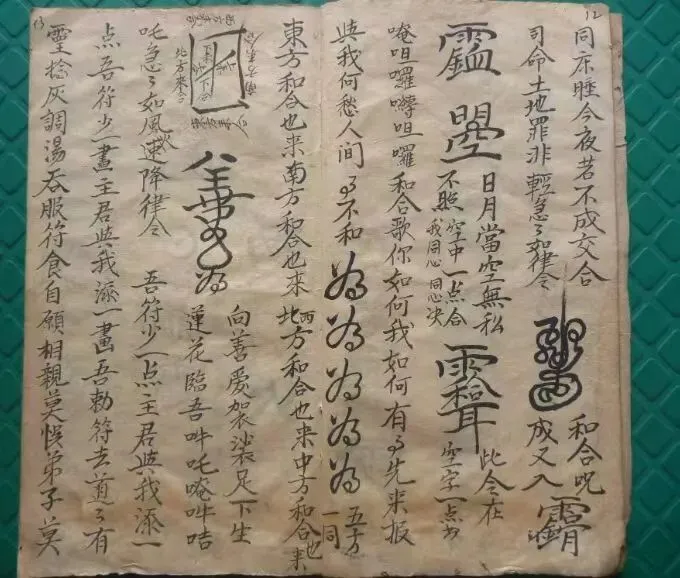 12
同床睡今夜若不成交合
司命土地罪非輕急々如律令
和合咒
成又入
日月當空無私
不照空中一点合
我同心同心决
此令在
空字一点出
和合歌你如何我如何有々先来报
與我何愁人间々不和為為為為為五方一同
東方和合也来南方和合也来西北方和合也来中方和合也来
13
向善爱袈裟足下生
蓮花臨吾吽吒唵吽咭
吒急々如風火速降律令
吾符少一点主君與我添一
点吾符少一畫主君與我添一畫吾勅符去道々有
靈捻灰調湯吞服符食自願相親莫悞弟子莫